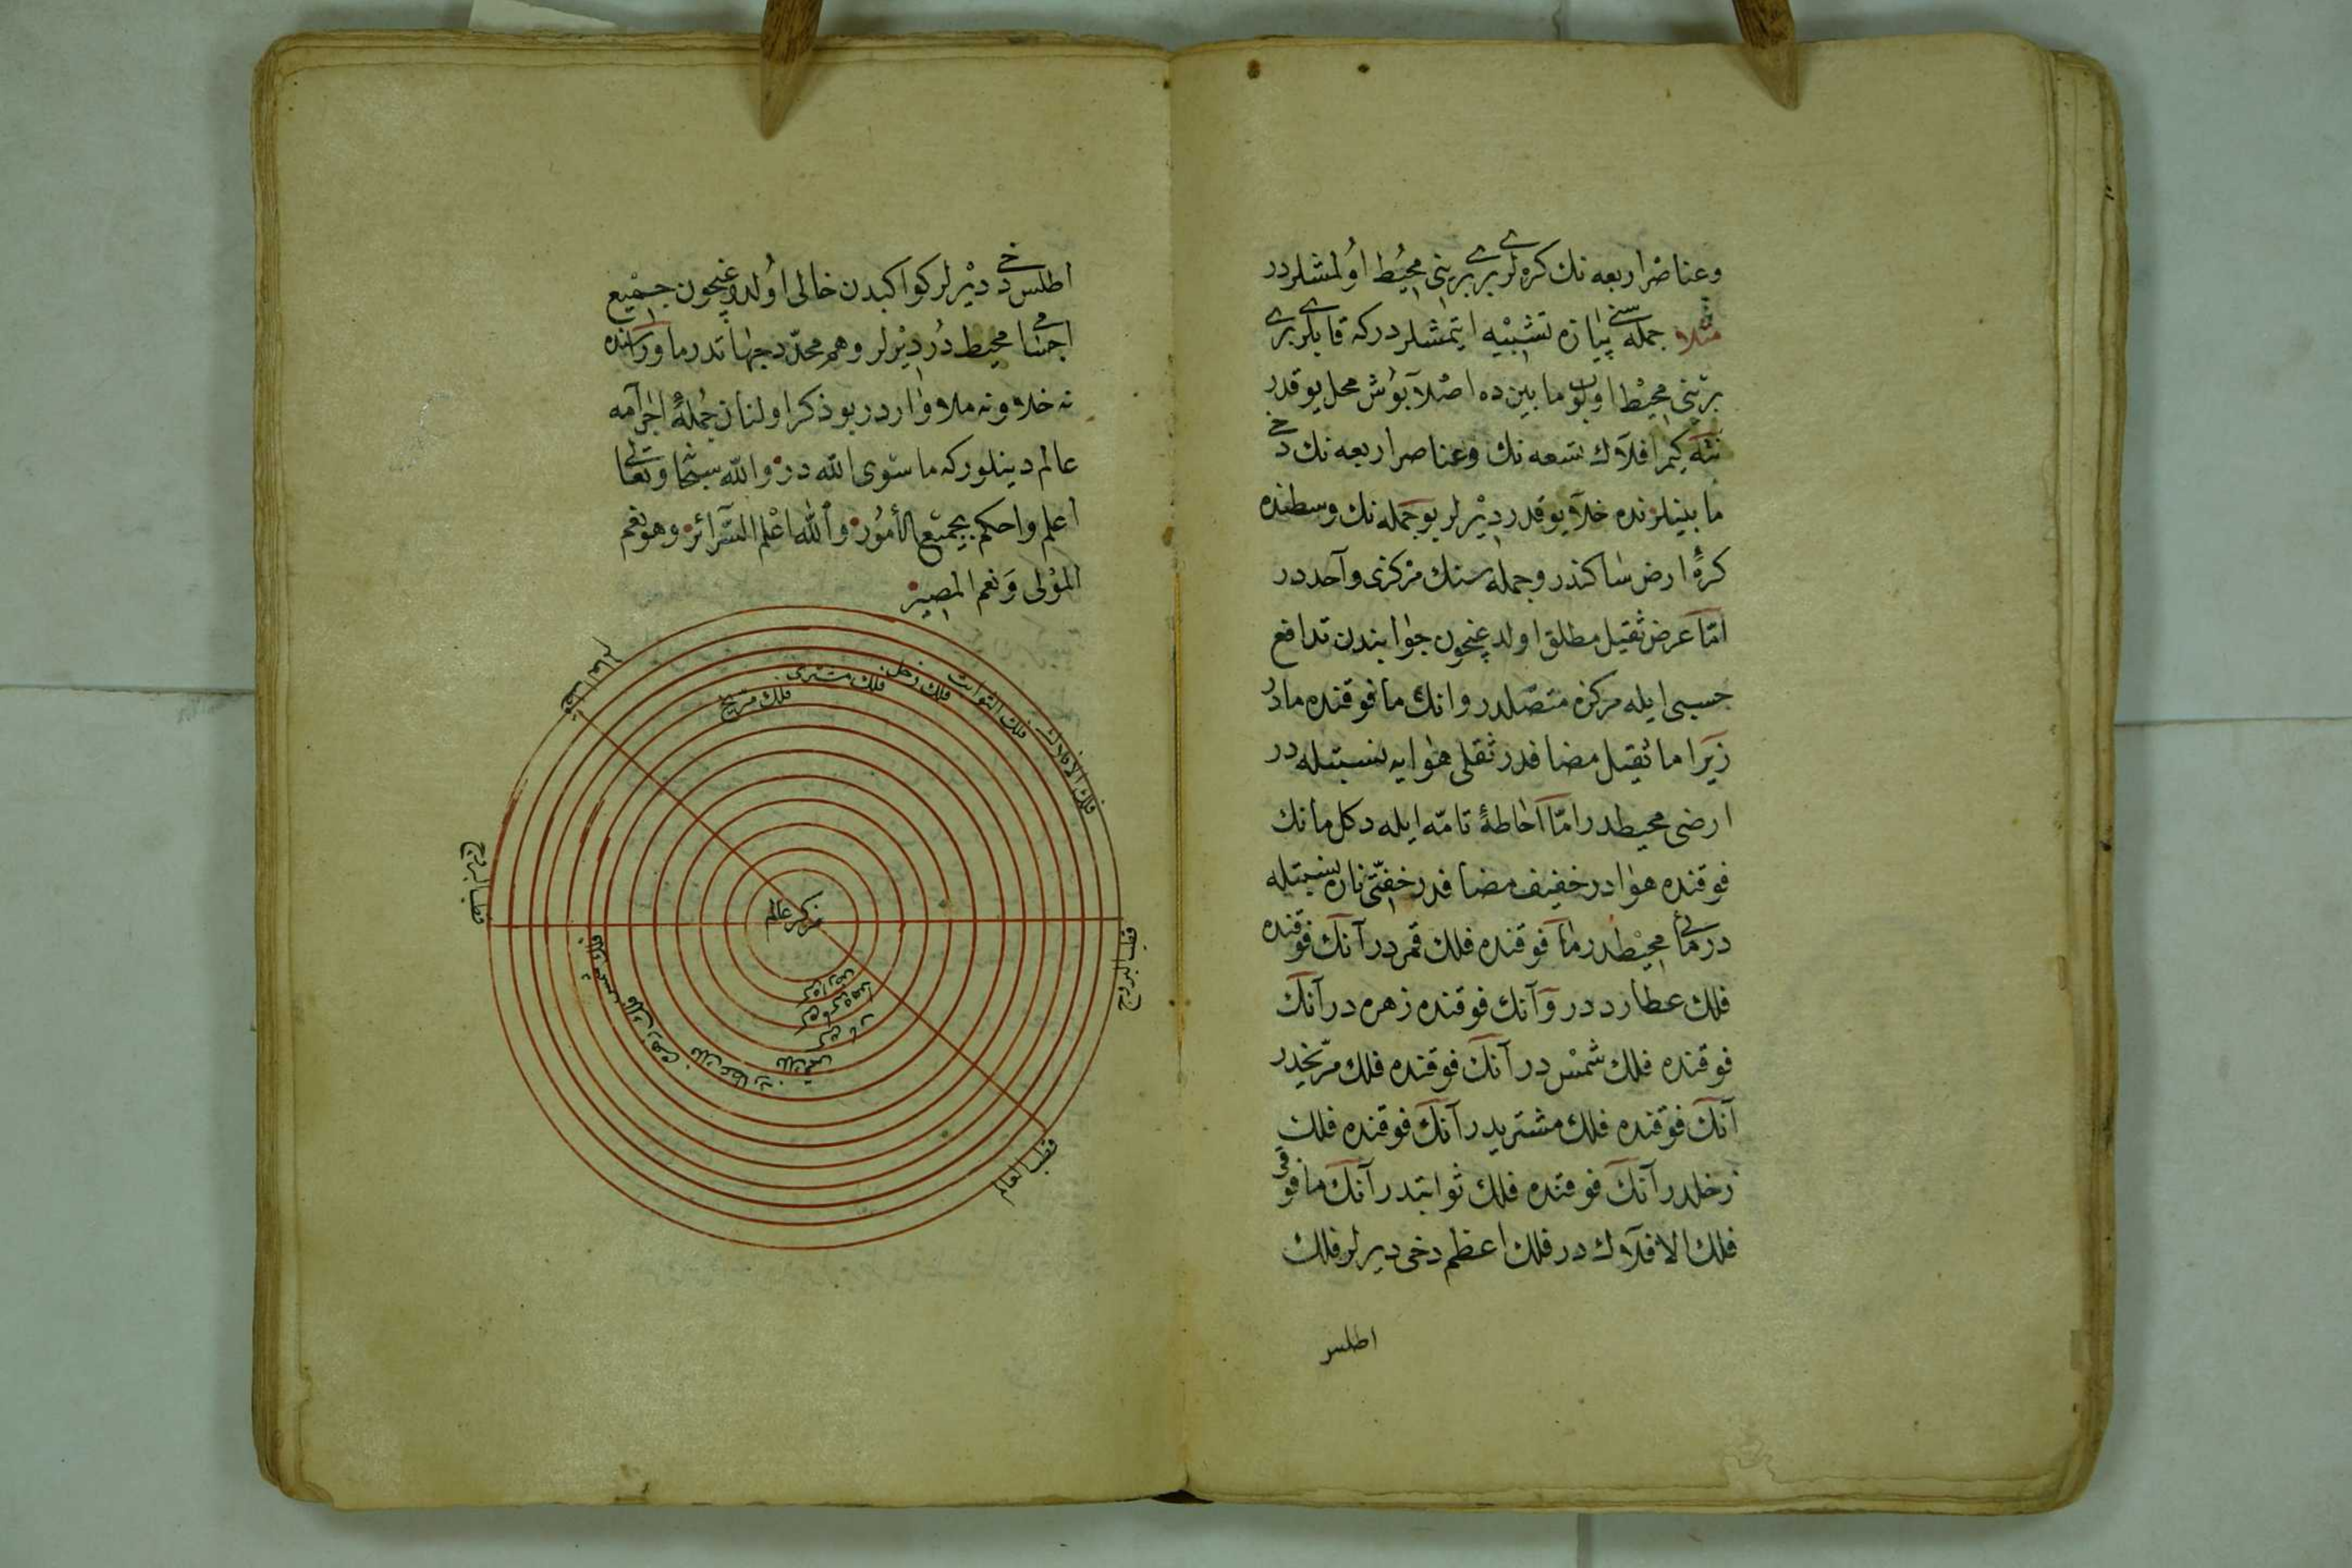 وعناصر اربعه نك كره لری بری برینی محیط اولمشلردر
مثلا جمله سنی پیازه تشبیه ایتمشلردر كه قابلری بری
برینی محیط اولوب مابین ده اصلا بوش محل یوقدر
نته كیم افلاك تسعه نك وعناصر اربعه نك دخی
مابینلرنده خلا یوقدر دیرلر بو جمله نك وسطنده
كرهٔ ارض ساكندر وجمله سنك مركزی واحددر
امّا عرض ثقیل مطلق اولدیغیچون جوانبندن تدافع
حسبی ایله مركزه متصلدر وانك مافوقنده مادر
زیرا ما ثقیل مضافدر ثقلی هوایه نسبتله در
ارضی محیطدر امّا احاطهٔ تامّه ایله دكل مانك
فوقنده هوادر خفیف مضافدر خفّتی نار نسبتیله
در مائی محیطدر مافوقنده فلك قمردر آنك فوقنده
فلك عطارد در وآنك فوقنده زهره در آنك
فوقنده فلك شمس در آنك فوقنده فلك مرّیخدر
آنك فوقنده فلك مشتریدر آنك فوقنده فلك
زحلدر آنك فوقنده فلك ثوابتدر آنك مافوقی
فلك الافلاك در فلك اعظم دخی دیرلر فلك
اطلس
اطلس دخی دیرلر كواكبدن خالی اولدوغیچون جمیع
اجسامی محیطدر دیرلر وهم محدّد جهاتدر ماوراسنده
نه خلا ونه ملا واردر بو ذكر اولنان جملهٔ اجرامه
عالم دینلور كه ما سوی الله در والله سبحانه وتعالی
اعلم واحكم بجمیع الأمور والله اعلم السّرائر وهو نعم
المولی ونعم المصیر
قطب العالم
فلك الافلاك
فلك الثوابت
فلك زحل
فلك مشتری
فلك مریخ
قطب البروج
مركز عالم
قطب البروج
فلك شمس
فلك زهره
فلك عطارد
فلك قمر
كره نار
كره هوا
كره ارض
قطب العالم